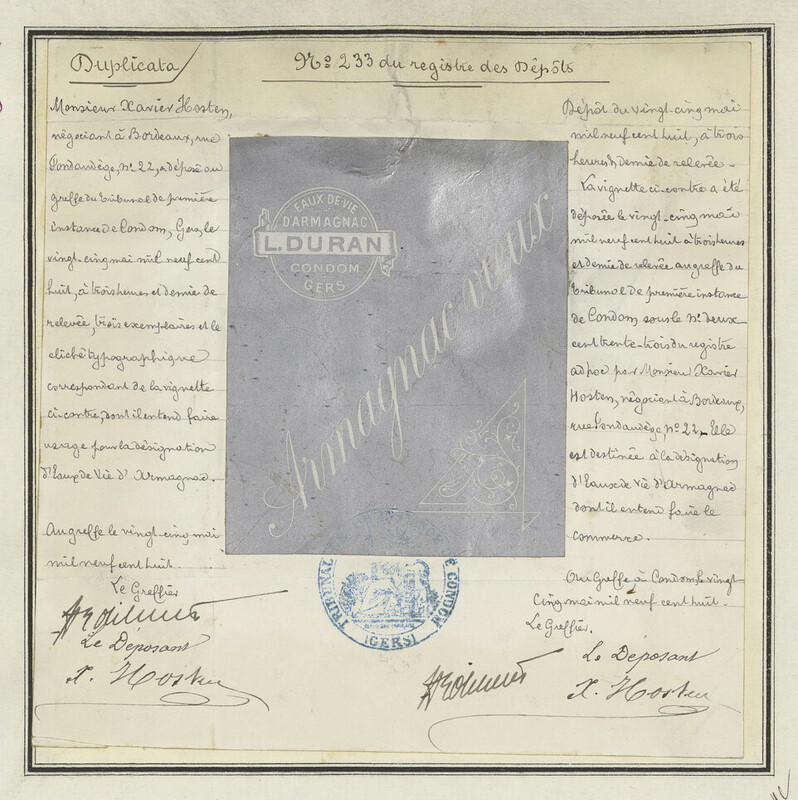 Duplicata
No 233 du registre des Dépôts
Monsieur Xavier Hosten,
négociant à Bordeaux, rue
Pondaudège, no 22, a déposé au
greffe du Tribunal de première
instance de Condom, Gers, le
vingt-cinq mai mil neuf cent
huit, à trois heures et demie de
relevée, trois exemplaires et le
cliché typographique
correspondant de la vignette
ci-contre, dont il entend faire
usage pour la désignation
d'Eaux de Vie d'Armagnac.
Au greffe le vingt-cinq mai
mil neuf cent huit.
Le Greffier
Le Déposant
X. Hosten
EAUX DE VIE
D'ARMAGNAC
L. DURAN
CONDOM
GERS
Armagnac vieux
TRIBUNAL
CONDOM
(GERS)
Dépôt du vingt-cinq mai
mil neuf cent huit, à trois
heures & demie de relevée.
La vignette ci-contre a été
déposée le vingt-cinq mai
mil neuf cent huit à trois heures
et demie de relevée au greffe du
Tribunal de première instance
de Condom sous le no deux
cent trente-trois du registre
ad hoc par Monsieur Xavier
Hosten, négociant à Bordeaux,
rue Pondaudège, no 22. Elle
est destinée à la désignation
d'Eaux de Vie d'Armagnac
dont il entend faire le
commerce.
Au Greffe à Condom le vingt
cinq mai mil neuf cent huit.
Le Greffier.
Le Déposant
X. Hosten